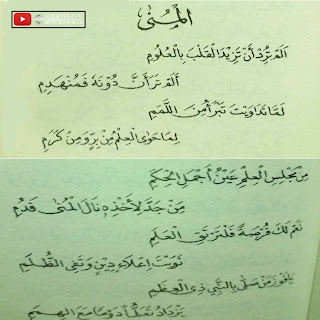 الْمُنَى
اَلَمْ تُرِدْ أَنْ تَزِيْدَ الْقَلْبَ بِالْعُلُومِ
أَلَمْ تَرَ أَنَّ دُوْنَهُ فَمُنْهَدِمِ
لَمَّا تَدَاوَيْتَ تَبْرَأُ مِنَ اللَّمَمِ
لِمَا حَوَى الْعِلْمُ مِنْ بِرٍّ وَمِنْ كَرَمِ
مِنْ مَجْلِسِ الْعِلْمِ عَيْنُ أَجْمَلِ الْحِكَمِ
مَنْ جَدَّ لِأَخْذِهِ نَالَ الْمُنَى قَدُمِ
نَعَمْ لَكَ فُرْصَةٌ فَلْتَرْتَقِ الْعَلَمِ
نَوَيْتَ إِعْلَاءَ دِيْنٍ وَتَفِى الظُّلَمِ
يَافَوْزَ مَنْ صَلَّى بِالنَّبِي ذِى الْعِظَمِ
يَزْدَادُ تَعَلُّمًا دَوْمًا مَعَ الْهِمَمِ